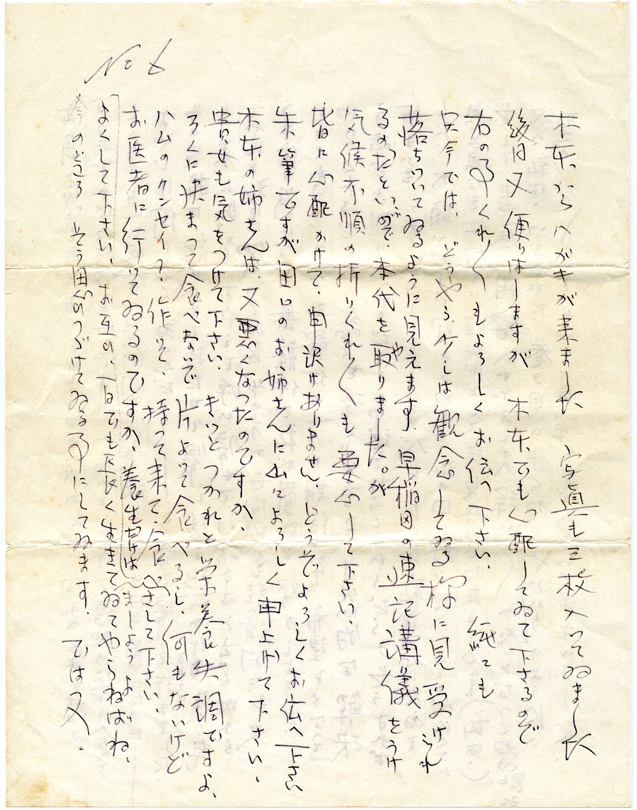 No 6
木本からハガキが来ました 写真も三枚入ってゐました
後日又便りはしますが 木本でも心配してゐて下さるので
右の事くれ〲もよろしくお伝へ下さい。 純ても
只今では、どうやら少しは観念してゐる様に見受けられ
落ちついてゐるように見えます 早稲田の速記講儀をうけ
るのだといふので本代をや取りました。が
気候不順の折りくれ〲も要心して下さい、
皆に心配かけて、申訳けありません、どうぞよろしくお伝へ下さい
朱筆ですが田口のお姉さんに山によろしく申上げて下さい、
木本の姉さんは、又悪くなったのですか、
貴女も気をつけて下さい。きっとつかれと栄養失調ですよ、
ろくに決まって食べないで片よって食べるし、何もないけど
ハムのクンセイで、作って、持って来て、食べさして下さい
お医者に行ってゐるのですか、養生だけはしましようよ
よくして下さい、お互ひ、一日でも長く生きてゐてやらねばね、
今のところ そう思ひつづけてゐる事にしてゐます、 では又、